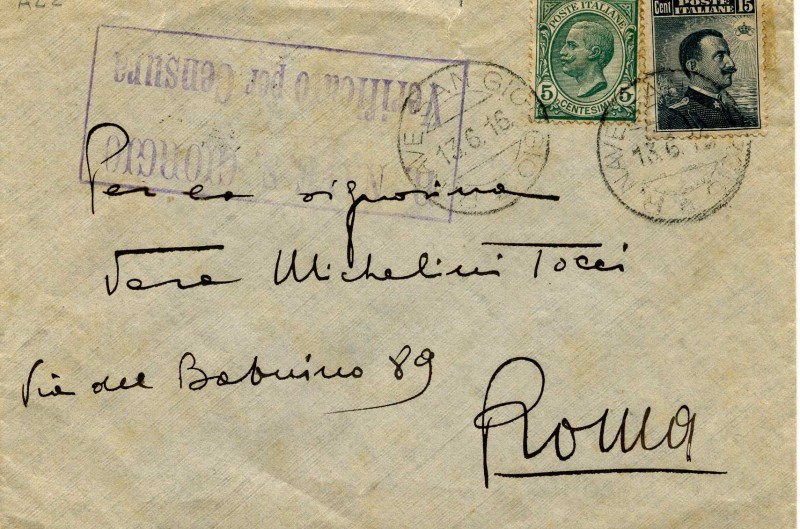 ALL
POSTE ITALIANE
5 CENTESIMI 5
Cent 15
POSTE ITALIANE
R. NAVE SAN GIORGIO
13.6.16
R. NAVE
13.6.
Verificato per Censura
R. NAVE S. GIORGIO
Per la signorina
Vera Michelini Tocci
Via del Babuino 89
Roma